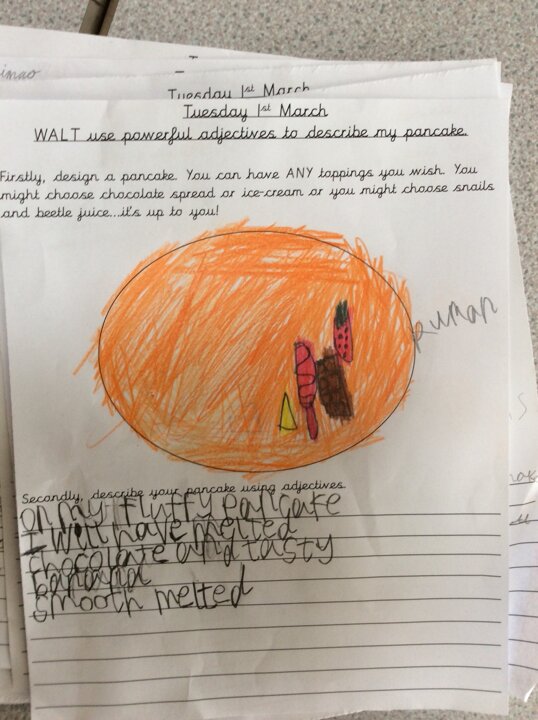 Tuesday 1st March
Tuesday 1st March
WALT use powerful adjectives to describe my pancake.
Firstly, design a pancake. You can have ANY toppings you wish. You
might choose chocolate spread or ice-cream or you might choose snails
and beetle juice...it's up to you!
Ruman
Secondly, describe your pancake using adjectives.
on my fluffy pancake
I will have melted
chocolate and tasty
banana
smooth melted